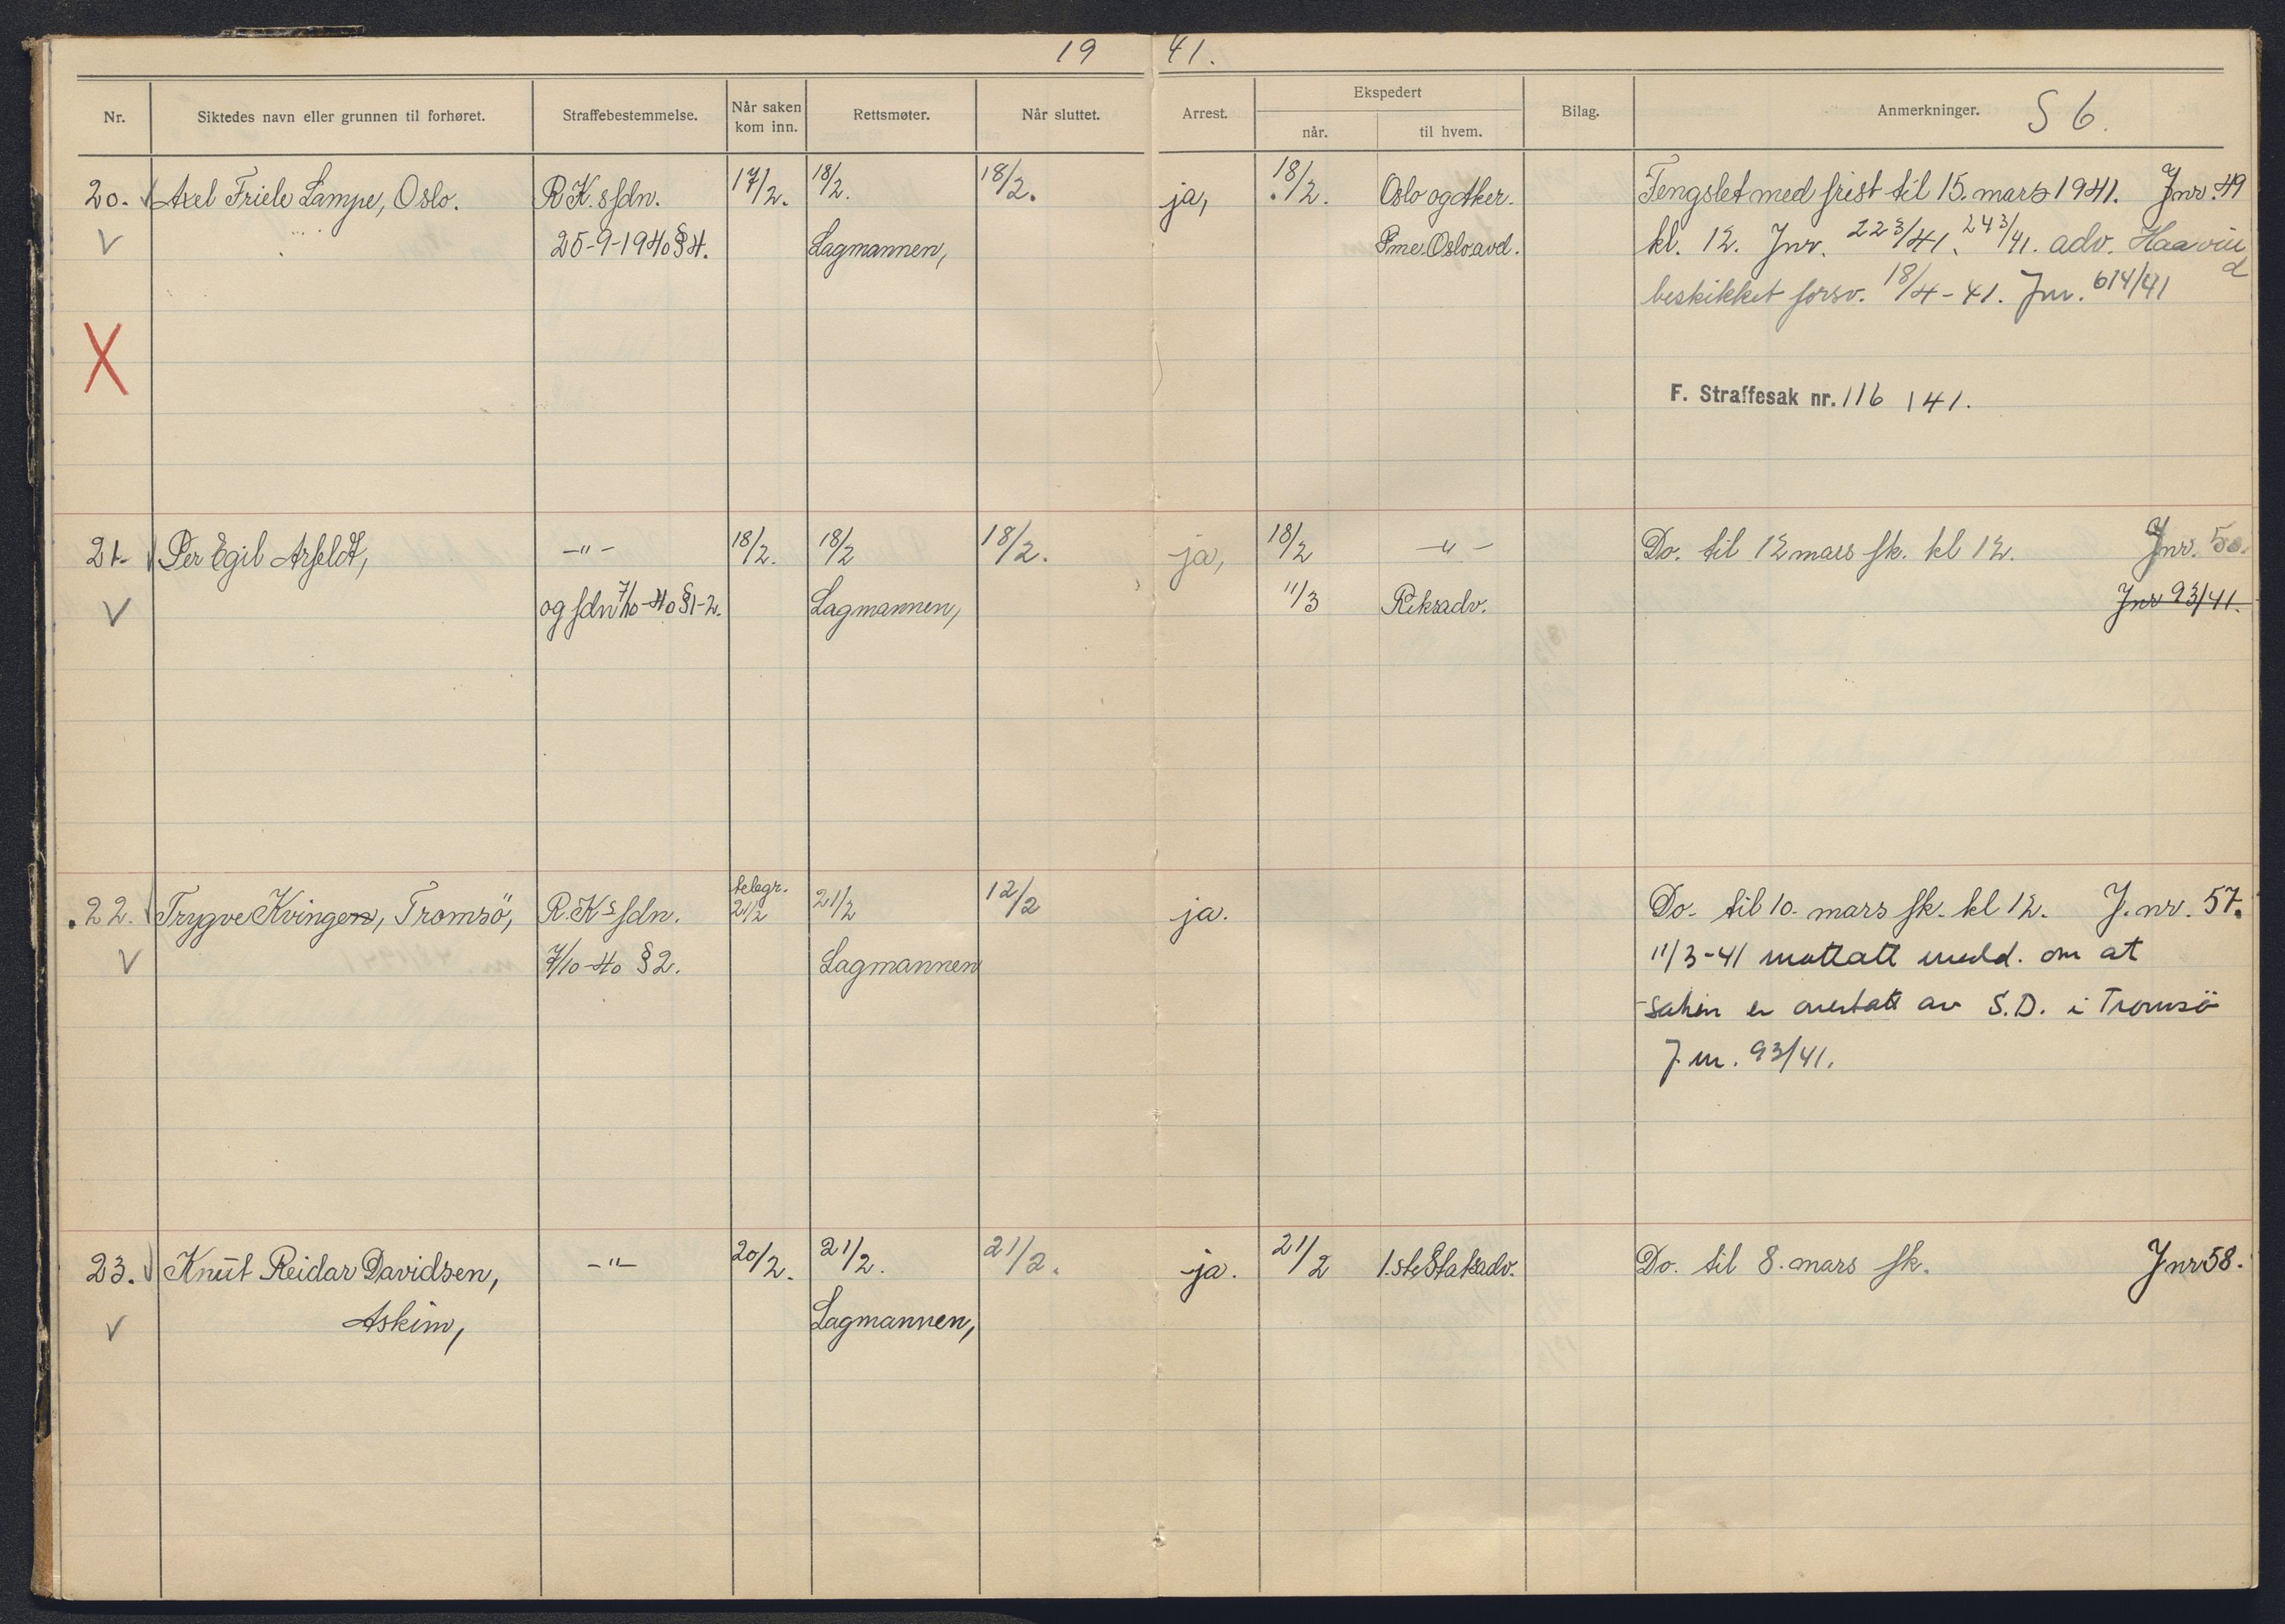 19 41.
Nr. Siktedes navn eller grunnen til forhøret. Straffebestemmelse. Når saken kom inn. Rettsmøter. Når sluttet. Arrest. Ekspedert når. til hvem. Bilag. Anmerkninger. S 6.
20. Axel Friele Lampe, Oslo. R.K.s fdn. 17/2. 18/2. 18/2. ja, 18/2. Oslo og Aker. Fengslet med frist til 15. mars 1941. Jnr. 49
V 25-9-1940 § 4. Lagmannen, Oslo avd. kl. 12. Jnr. 223/41, 243/41. adv. Haavind
beskikket forsv. 18/4-41. Jnr. 614/41
X
F. Straffesak nr. 116 / 41.
21. Per Egil Arfeldt, -"- 18/2. 18/2 18/2. ja, 18/2 -"- Do. til 12 mars fk. kl 12. Jnr. 50.
V og fdn 7/10-40 § 1-2. Lagmannen, 11/3 Riksadv. Jnr 93/41.
22. Trygve Kvingen, Tromsö, R.Ks fdn. telegr. 21/2 21/2 12/2 ja. Do. til 10. mars fk. kl 12. J. nr. 57.
V 7/10-40 § 2. Lagmannen 11/3-41 mottatt medd. om at
saken er overtatt av S.D. i Tromsö
J. nr. 93/41.
23. Knut Reidar Davidsen, -"- 20/2. 21/2. 21/2. ja. 21/2 1.ste Statsadv. Do. til 8. mars fk. Jnr 58.
V Askim, Lagmannen,